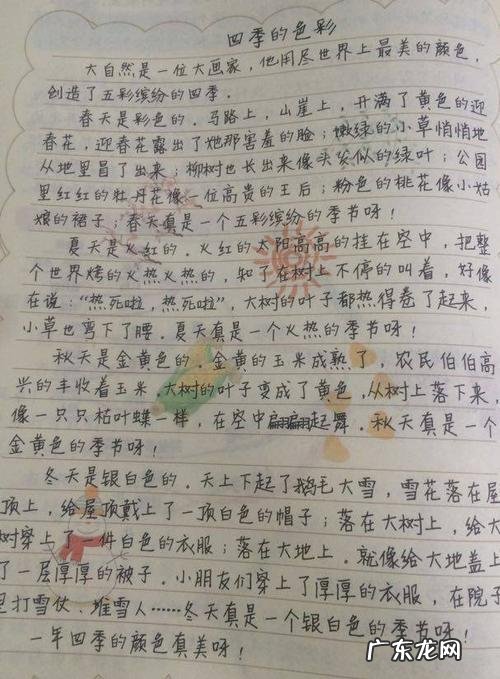 四季的色彩
大自然是一位大画家，他用尽世界上最美的颜色，
创造了五彩缤纷的四季．
春天是彩色的．马路上，山崖上，开满了黄色的迎
春花，迎春花露出了她那害羞的脸；嫩绿的小草悄悄地
从地里冒了出来；柳树也长出来像头发似的绿叶；公园
里红红的牡丹花像一位高贵的王后；粉色的桃花像小姑
娘的裙子；春天真是一个五彩缤纷的季节呀！
夏天是火红的．火红的太阳高高的挂在空中，把整
个世界烤的火热火热的，知了在树上不停的叫着，好像
在说：“热死啦，热死啦”，大树的叶子都热得卷了起来，
小草也弯下了腰．夏天真是一个火热的季节呀！
秋天是金黄色的．金黄的玉米成熟了，农民伯伯高
兴的丰收着玉米．大树的叶子变成了黄色，从树上落下来，
像一只只枯叶蝶一样，在空中翩翩起舞．秋天真是一个
金黄色的季节呀！
冬天是银白色的．天上下起了鹅毛大雪，雪花落在屋
顶上，给屋顶戴上了一顶白色的帽子；落在大树上，给大
树穿上了一件白色的衣服；落在大地上．就像给大地盖上
了一层厚厚的被子．小朋友们穿上了厚厚的衣服，在院子
里打雪仗．堆雪人……冬天真是一个银白色的季节呀！
一年四季的颜色真美呀！
广东龙网